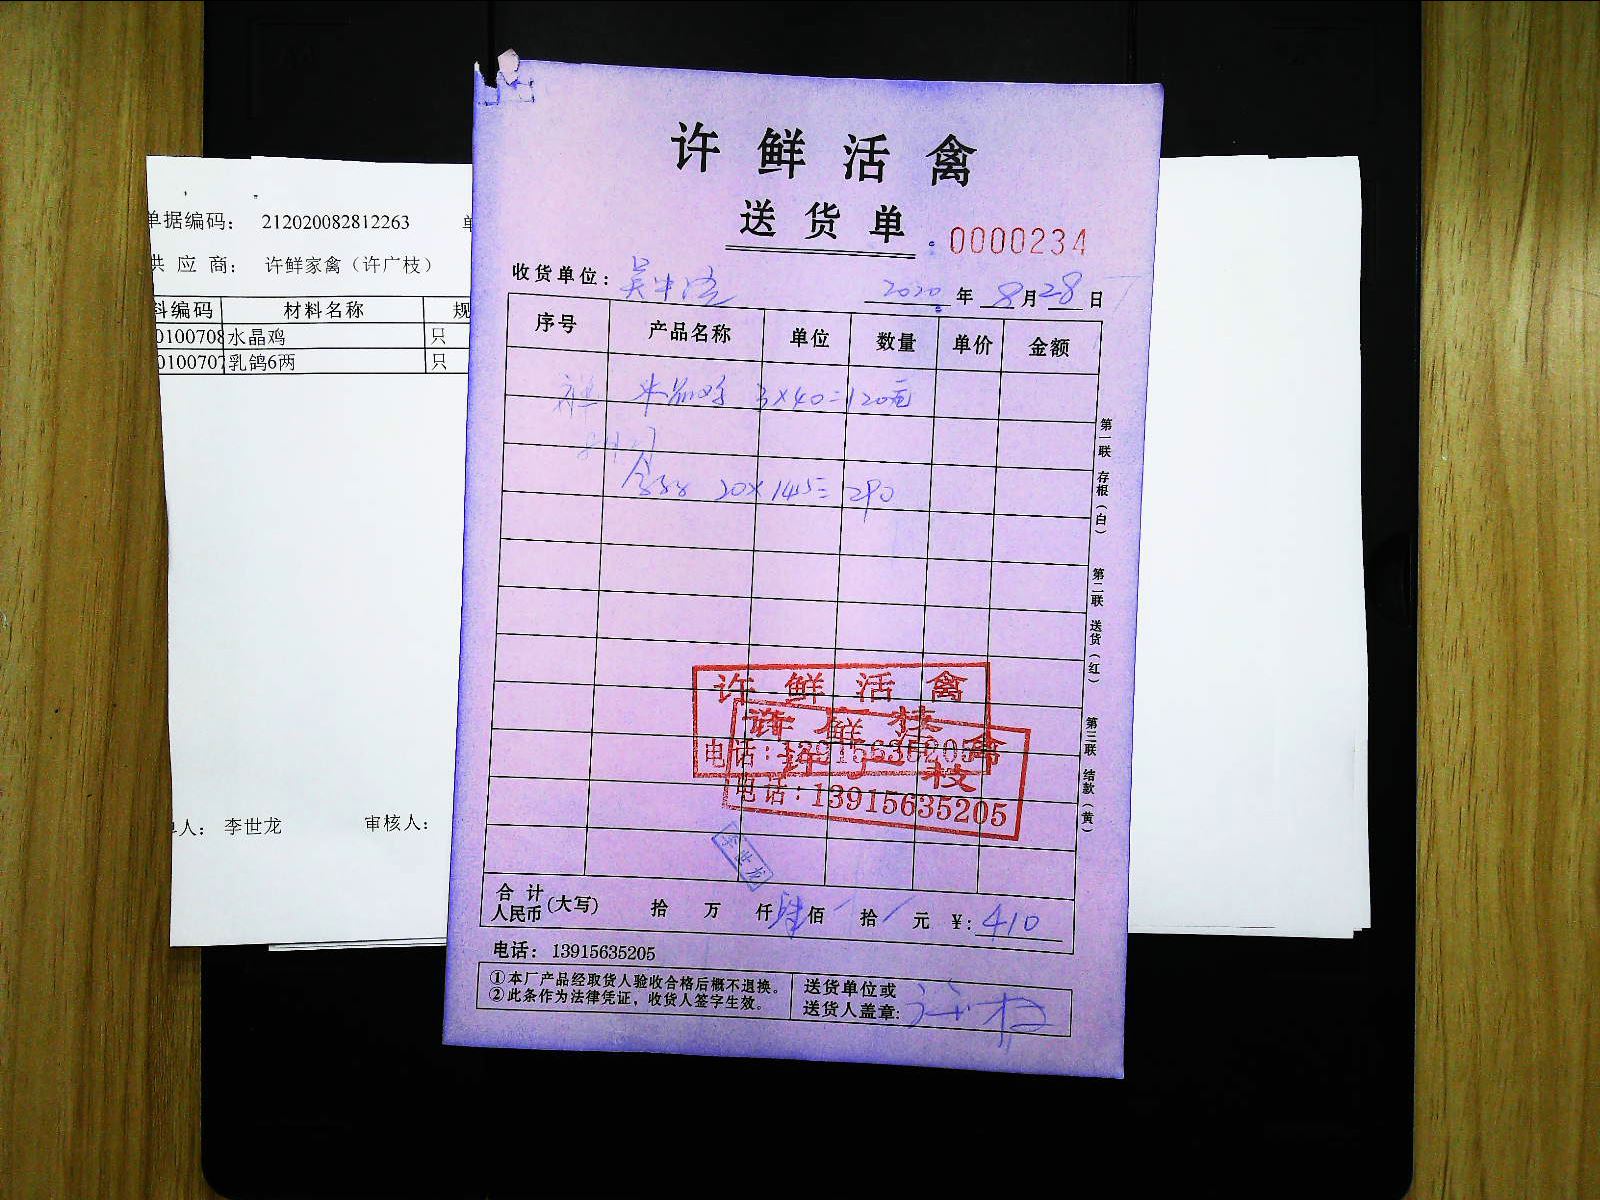 单据编码： 212020082812263 单
供 应 商： 许鲜家禽（许广枝）
料编码 材料名称 规
0100708 水晶鸡 只
0100707 乳鸽6两 只
单人： 李世龙 审核人：
许 鲜 活 禽
送 货 单
0000234
收货单位： 吴中 2020 年 8 月 28 日
序号 产品名称 单位 数量 单价 金额
水晶鸡 3×40=120元
20×14.5= 290
第一联 存根（白）
第二联 送货（红）
第三联 结款（黄）
许 鲜 活 禽
许 广 枝
电话：13915635205
许 鲜 活 禽
许 广 枝
电话：13915635205
李世龙
合 计
人民币 (大写) 拾 万 仟 肆 佰 拾 元 ¥: 410
电话： 13915635205
①本厂产品经取货人验收合格后概不退换。
②此条作为法律凭证，收货人签字生效。
送货单位或
送货人盖章: 许 枝